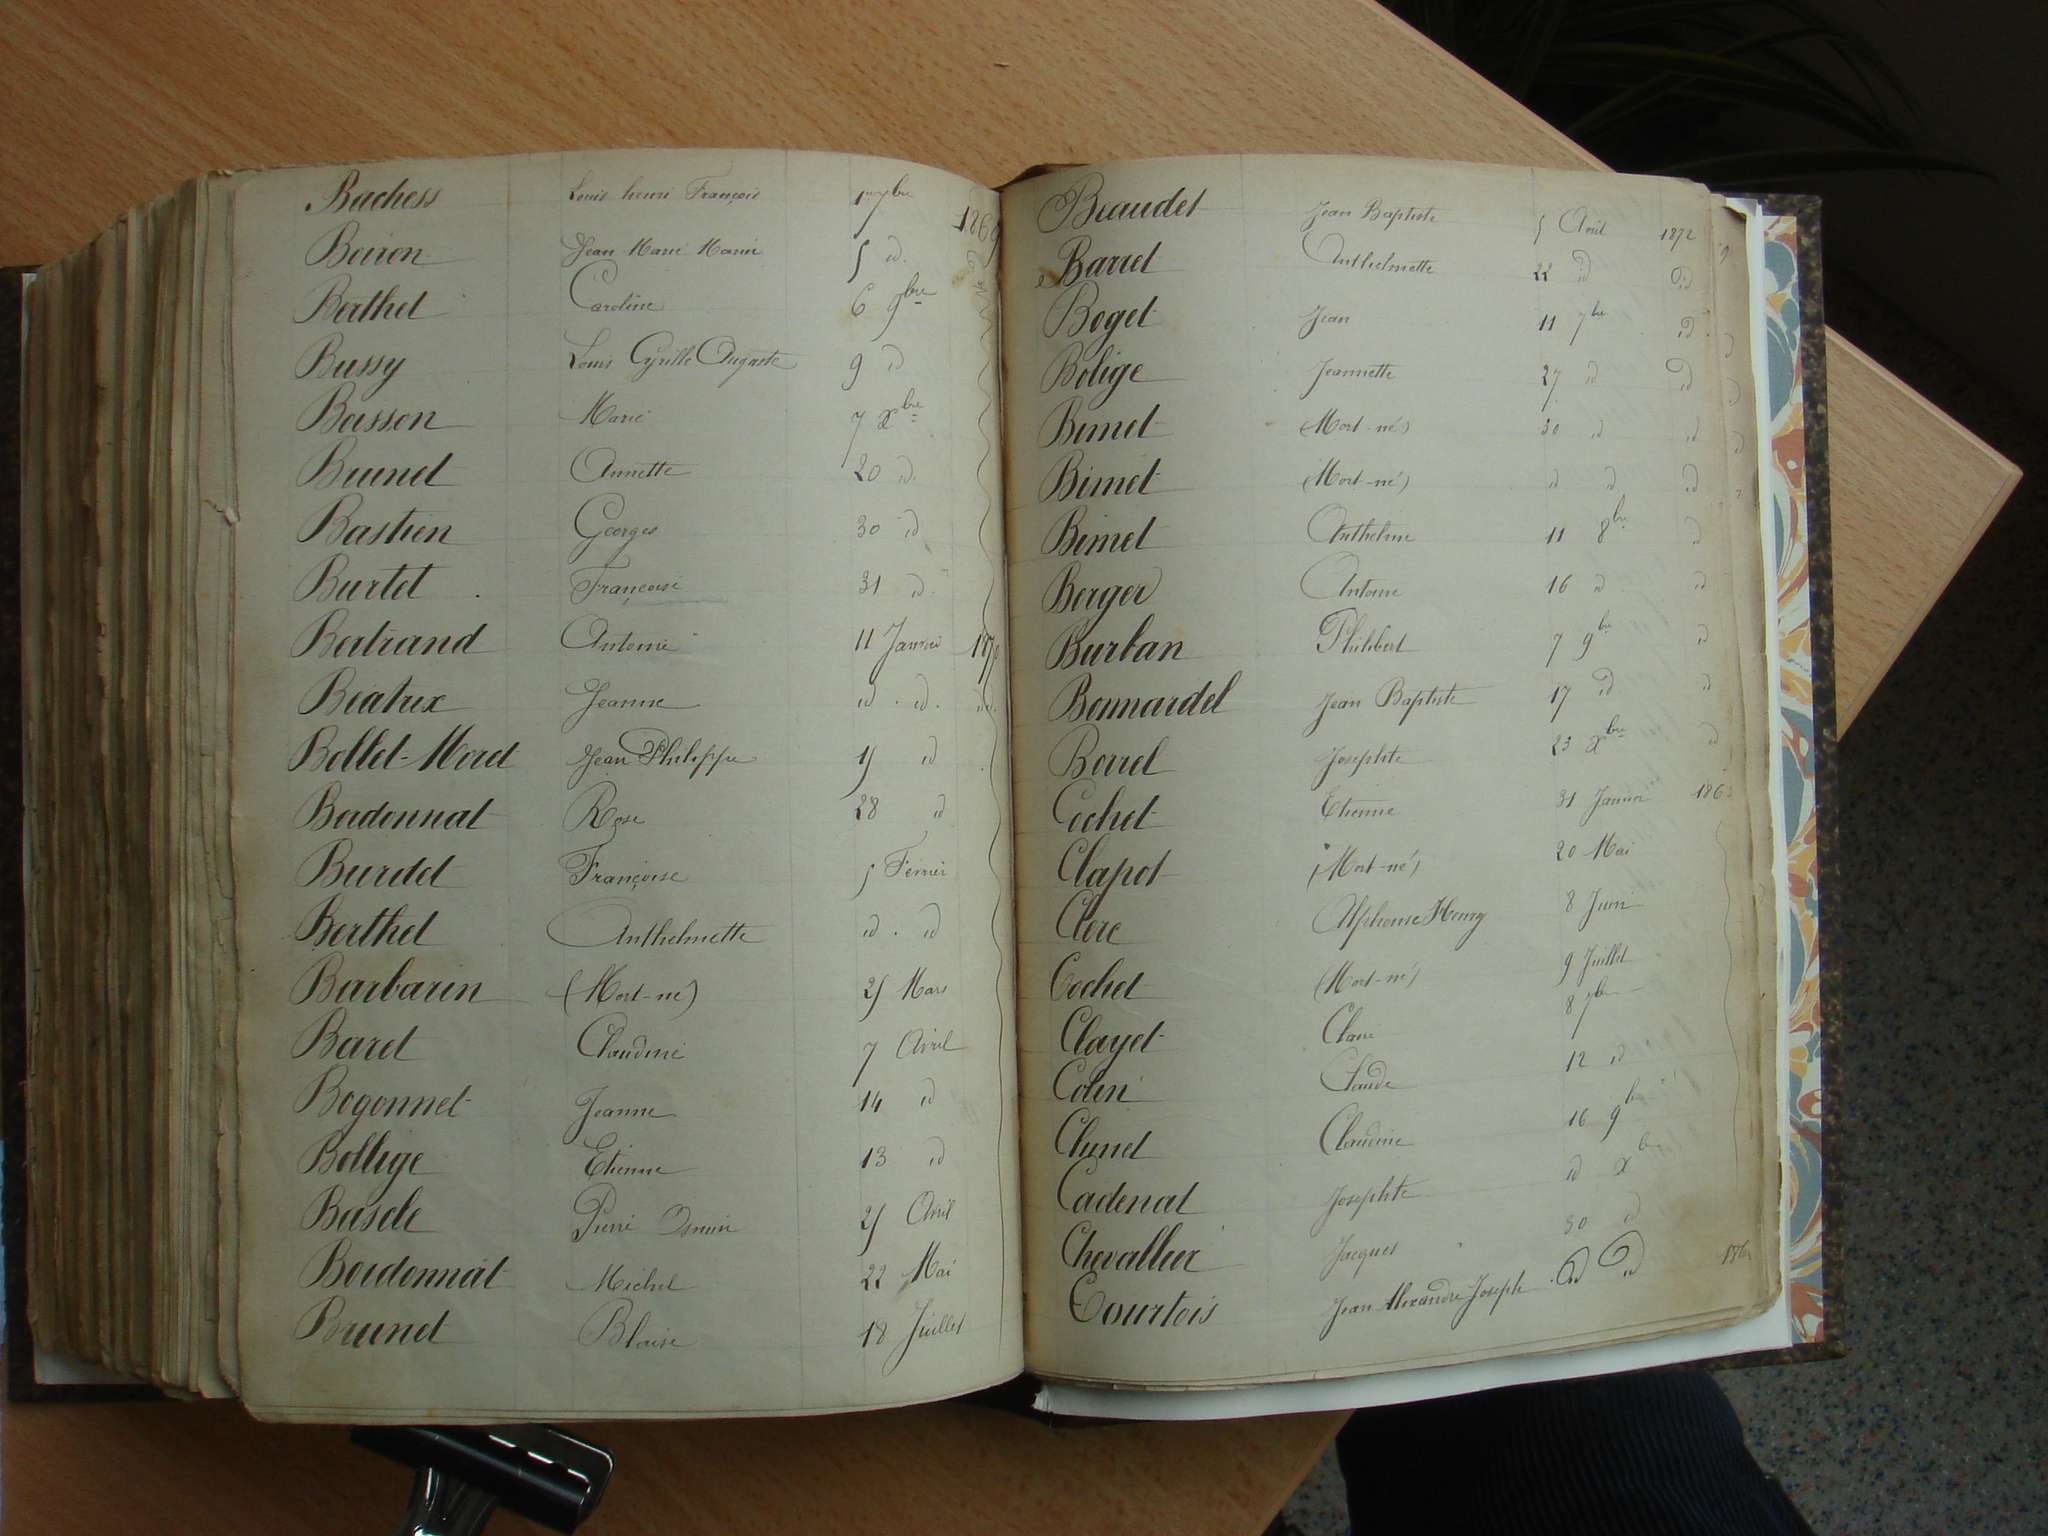 Bachess Louis henri François 1er 7bre 1869
Boiron Jean Marie Marin 5 id.
Berthet Caroline 6 9bre
Bussy Louis Cyrille Auguste 9 id
Basson Marie 7 Xbre
Brunet Annette 20 id.
Bastien Georges 30 id
Burtet Françoise 31 id.
Bertrand Antoine 11 Janvier 1870
Béatrix Jeanne id. id. id.
Bollet-Moret Jean Philippe 15 id
Badonnat Rose 28 id
Burdet Françoise 5 Février
Berthet Anthelmette id. id
Barbarin (Mort-né) 25 Mars
Baret Claudine 7 Avril
Bogonnet Jeanne 14 id
Bollige Etienne 13 id
Bascle Pierre 25 Avril
Bourdonnat Michel 22 Mai
Brunet Blaise 18 Juillet
Beaudet Jean Baptiste 5 Avril 1872
Barret Anthelmette 22 id id
Boget Jean 11 7bre id
Bolige Jeannette 27 id id
Bimet (Mort-né) 30 id id
Bimet (Mort-né) id id id
Bimet Anthelme 11 8bre id
Berger Antoine 16 id id
Burban Philibert 7 9bre id
Bonnardel Jean Baptiste 17 id id
Borrel Josephte 23 Xbre id
Cochet Etienne 31 Janvier 1863
Clapot (Mort-né) 20 Mai
Clerc Alphonse Henry 8 Juin
Cochet (Mort-né) 9 Juillet
Clayet Claire 8 7bre
Colin Claude 12 id
Clunet Claudine 16 9bre
Cadenat Josephte id Xbre
Chevallier Jacques 30 id
Courtois Jean Alexandre Joseph id id